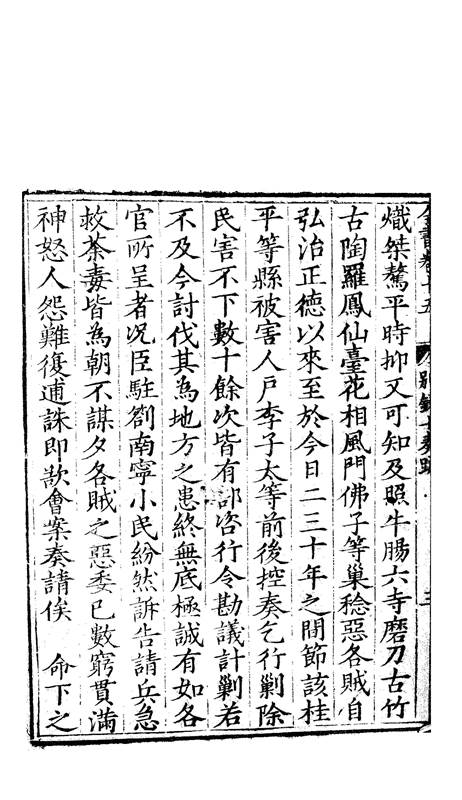 熾桀驁平時抑又可知及照牛腸六寺磨刀古竹
古陶羅鳳仙臺花相風門佛子等巢稔惡各賊自
弘治正德以來至於今日二三十年之間節該桂
平等縣被害人戶李子太等前後控奏乞行剿除
民害不下數十餘次皆有部咨行令勘議計剿若
不及今討伐其為地方之患終無底極誠有如各
官所呈者况臣駐劄南寧小民紛然訴告請兵急
救荼毒皆為朝不謀夕各賊之惡委已數窮貫滿
神怒人怨難復逋誅即欲會案奏請俟　命下之